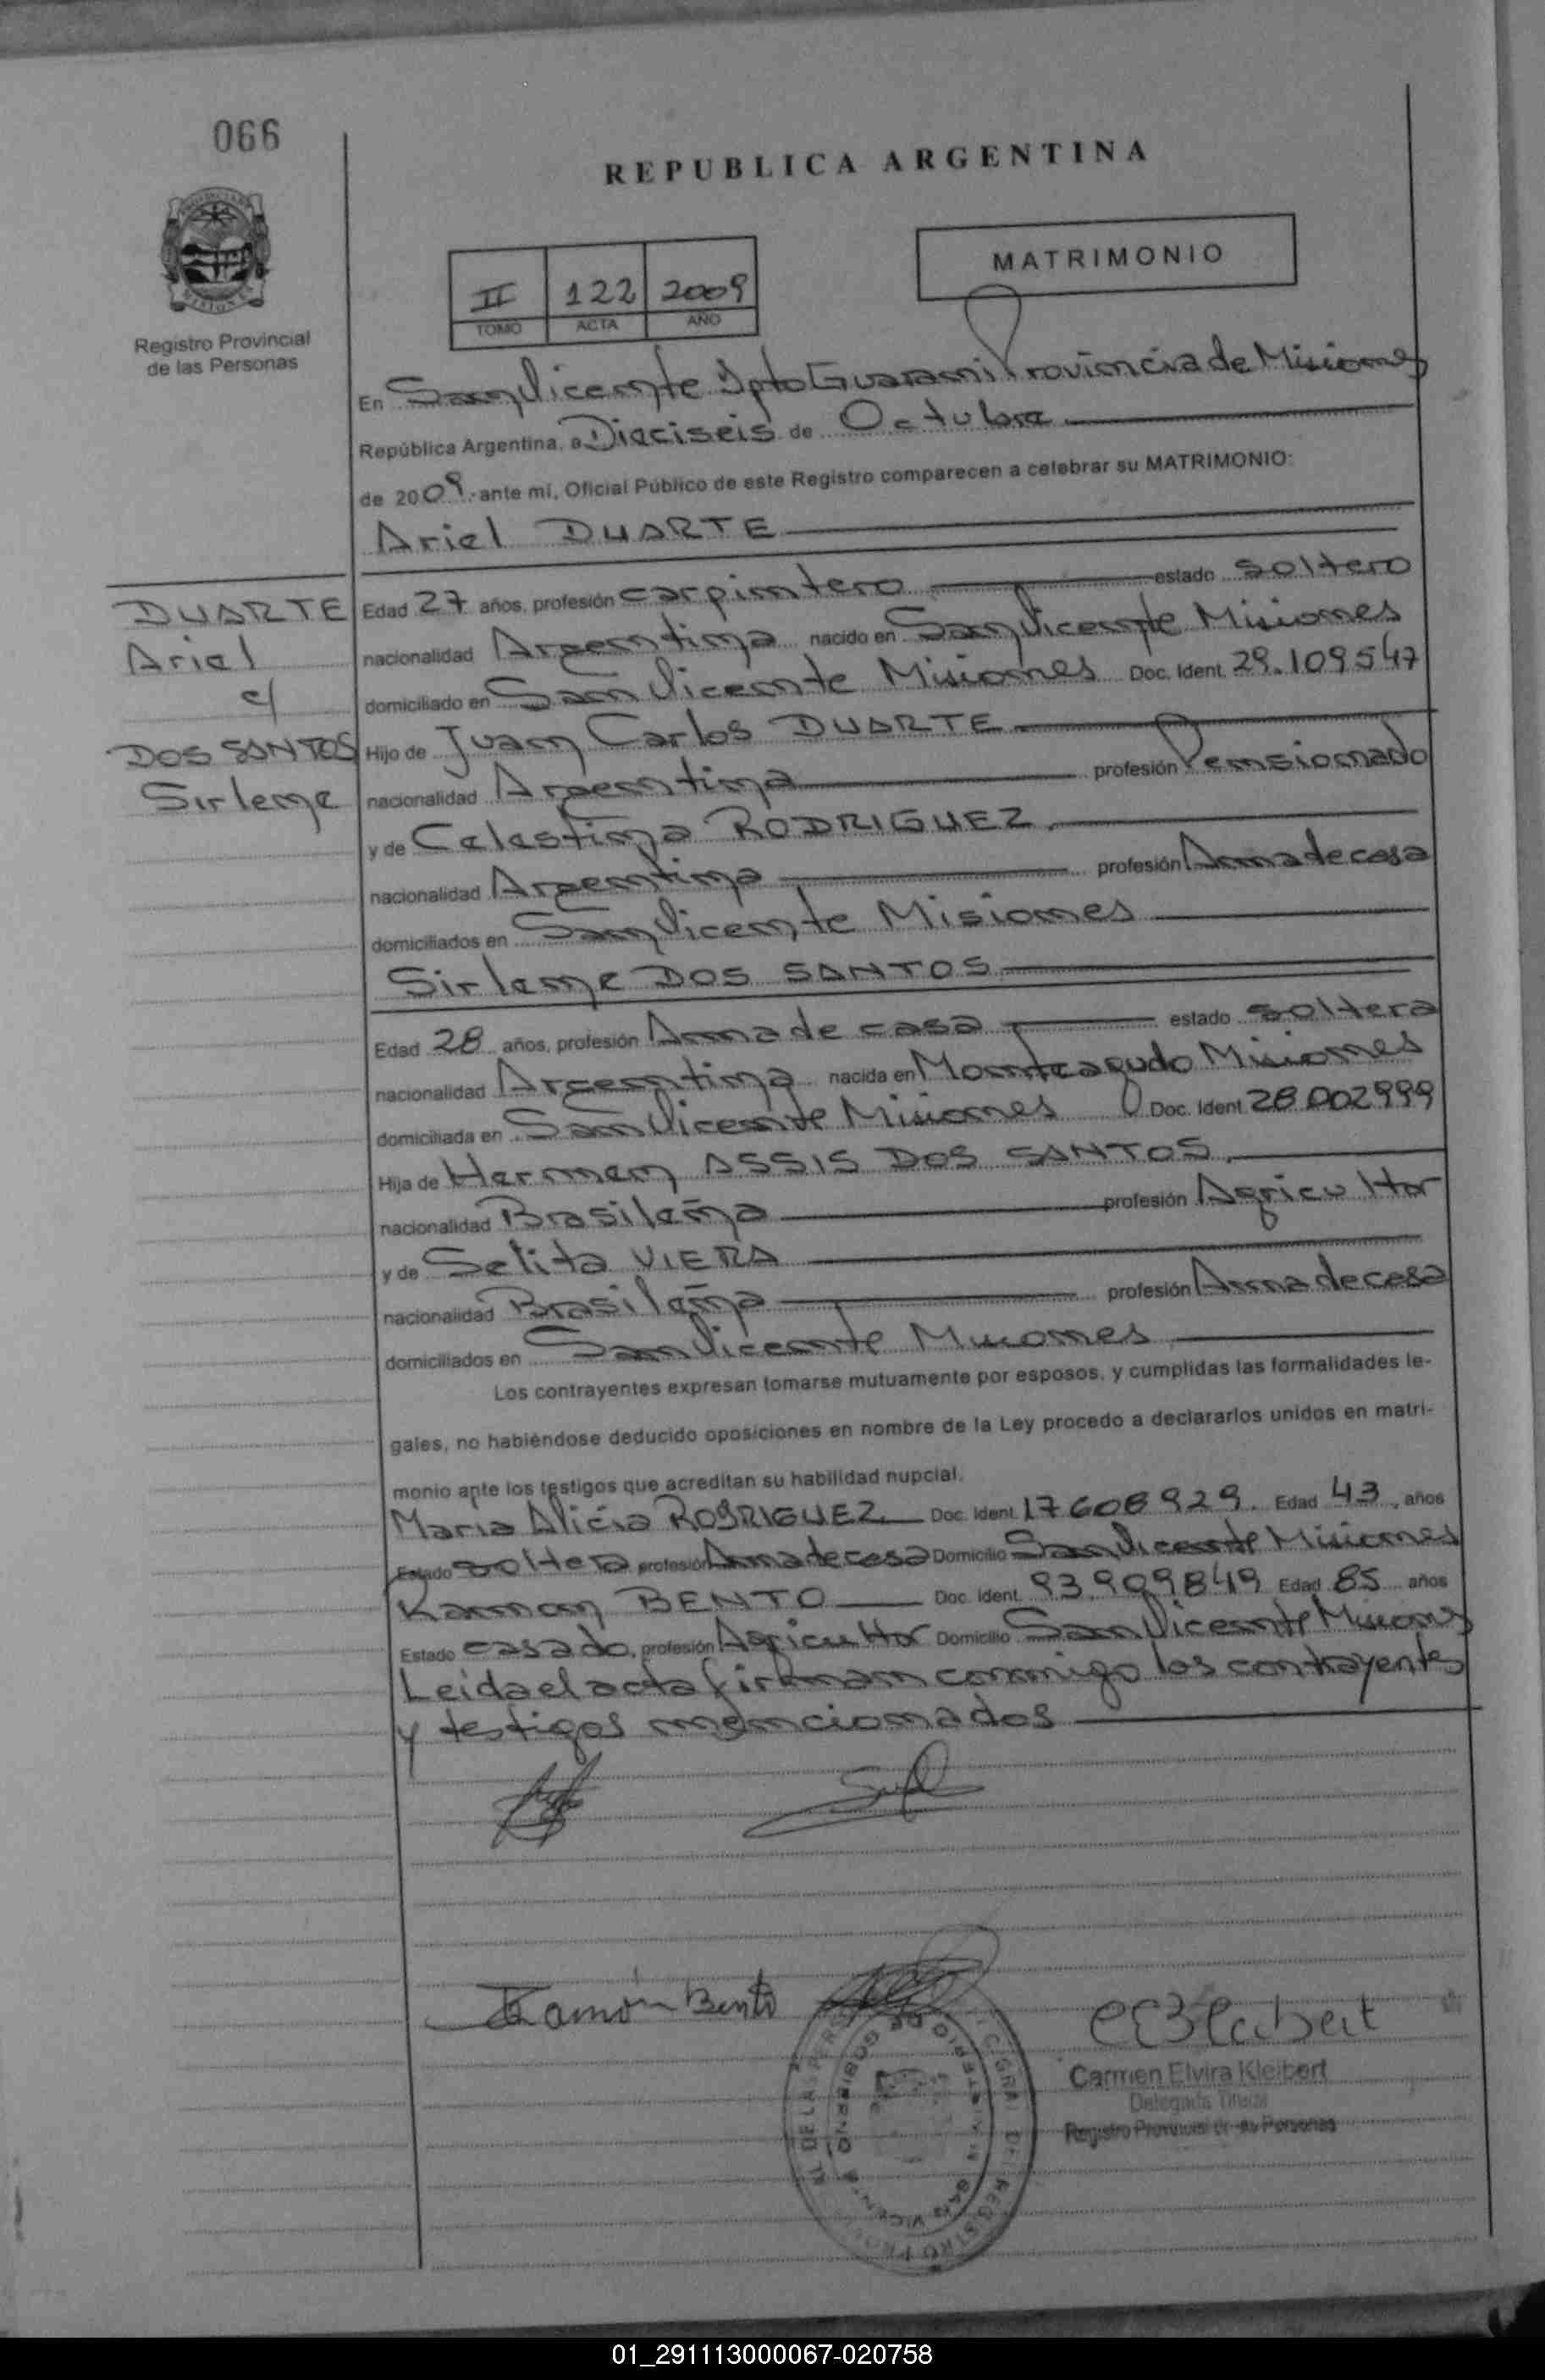 066
REPUBLICA ARGENTINA
MATRIMONIO
II 122 2009
TOMO ACTA AÑO
Registro Provincial
de las Personas
En San Vicente Dpto Guarani Provincia de Misiones
República Argentina, a Dieciseis de Octubre
de 2009 ante mí, Oficial Público de este Registro comparecen a celebrar su MATRIMONIO:
Ariel DUARTE
DUARTE
Ariel
c/
DOS SANTOS
Sirlene
Edad 27 años, profesión carpintero estado soltero
nacionalidad Argentina nacido en San Vicente Misiones
domiciliado en San Vicente Misiones Doc. Ident. 29.109547
Hijo de Juan Carlos DUARTE
nacionalidad Argentina profesión Pensionado
y de Celestina RODRIGUEZ
nacionalidad Argentina profesión Ama de casa
domiciliados en San Vicente Misiones
Sirlene DOS SANTOS
Edad 28 años, profesión Ama de casa estado soltera
nacionalidad Argentina nacida en Monteagudo Misiones
domiciliada en San Vicente Misiones Doc. Ident 28.002999
Hija de Hermen ASSIS DOS SANTOS
nacionalidad Brasileña profesión Agricultor
y de Selita VIERA
nacionalidad Brasileña profesión Ama de casa
domiciliados en San Vicente Misiones
Los contrayentes expresan tomarse mutuamente por esposos, y cumplidas las formalidades le-
gales, no habiéndose deducido oposiciones en nombre de la Ley procedo a declararlos unidos en matri-
monio ante los testigos que acreditan su habilidad nupcial.
Maria Alicia RODRIGUEZ Doc. Ident. 17608929. Edad 43, años
Estado soltera profesión Ama de casa Domicilio San Vicente Misiones
Ramon BENTO Doc. Ident. 93.909849 Edad 85 años
Estado casado, profesión Agricultor Domicilio San Vicente Misiones
Leida el acta firman conmigo los contrayentes
y testigos mencionados
Ramón Bento
Carmen Elvira Kleibert
Delegada Titular
Registro Provincial de las Personas
01_291113000067-020758